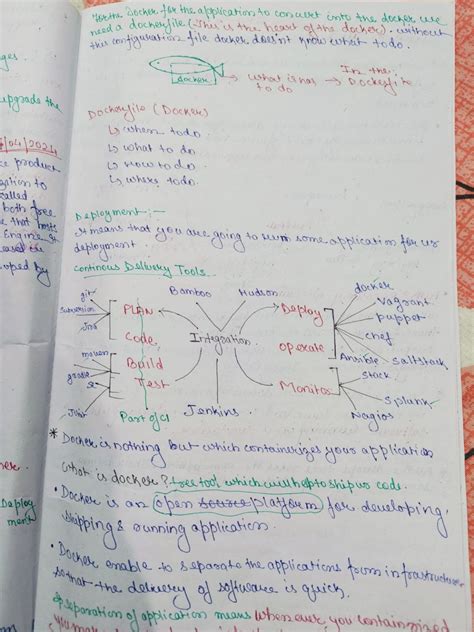 for the Docker for the application to convert into the docker we
need a dockerfile (This is the heart of the docker). without
this configuration file docker doesn't know what to do.
docker
what is has
to do
In the
Dockerfile
Dockerfile (Docker)
↳ when to do
↳ what to do
↳ How to do
↳ where to do
Deployment :-
it means that you are going to some application for us
deployment
Continous Delivery Tools
git
subversion
Jira
PLAN
Code
maven
gradle
Build
Test
Jira
Part of CI
Bamboo
Hudson
Integration
Jenkins
Deploy
operate
Monitor
docker
Vagrant
puppet
chef
Ansible
saltstack
stack
splunk
Nagios
* Docker is nothing but which containerizes your application
what is docker? → free tool which will help to ship ur code.
• Docker is an open source platform for developing,
shipping & running application.
• Docker enable to separate the applications from infrastructure
so that the delivery of software is quick.
separation of application means whenever you containerized
ges.
upgrade the
/04/2024
ce product
zation to
called
both free
e that hosts
Engine
oped by
Deploy
ment